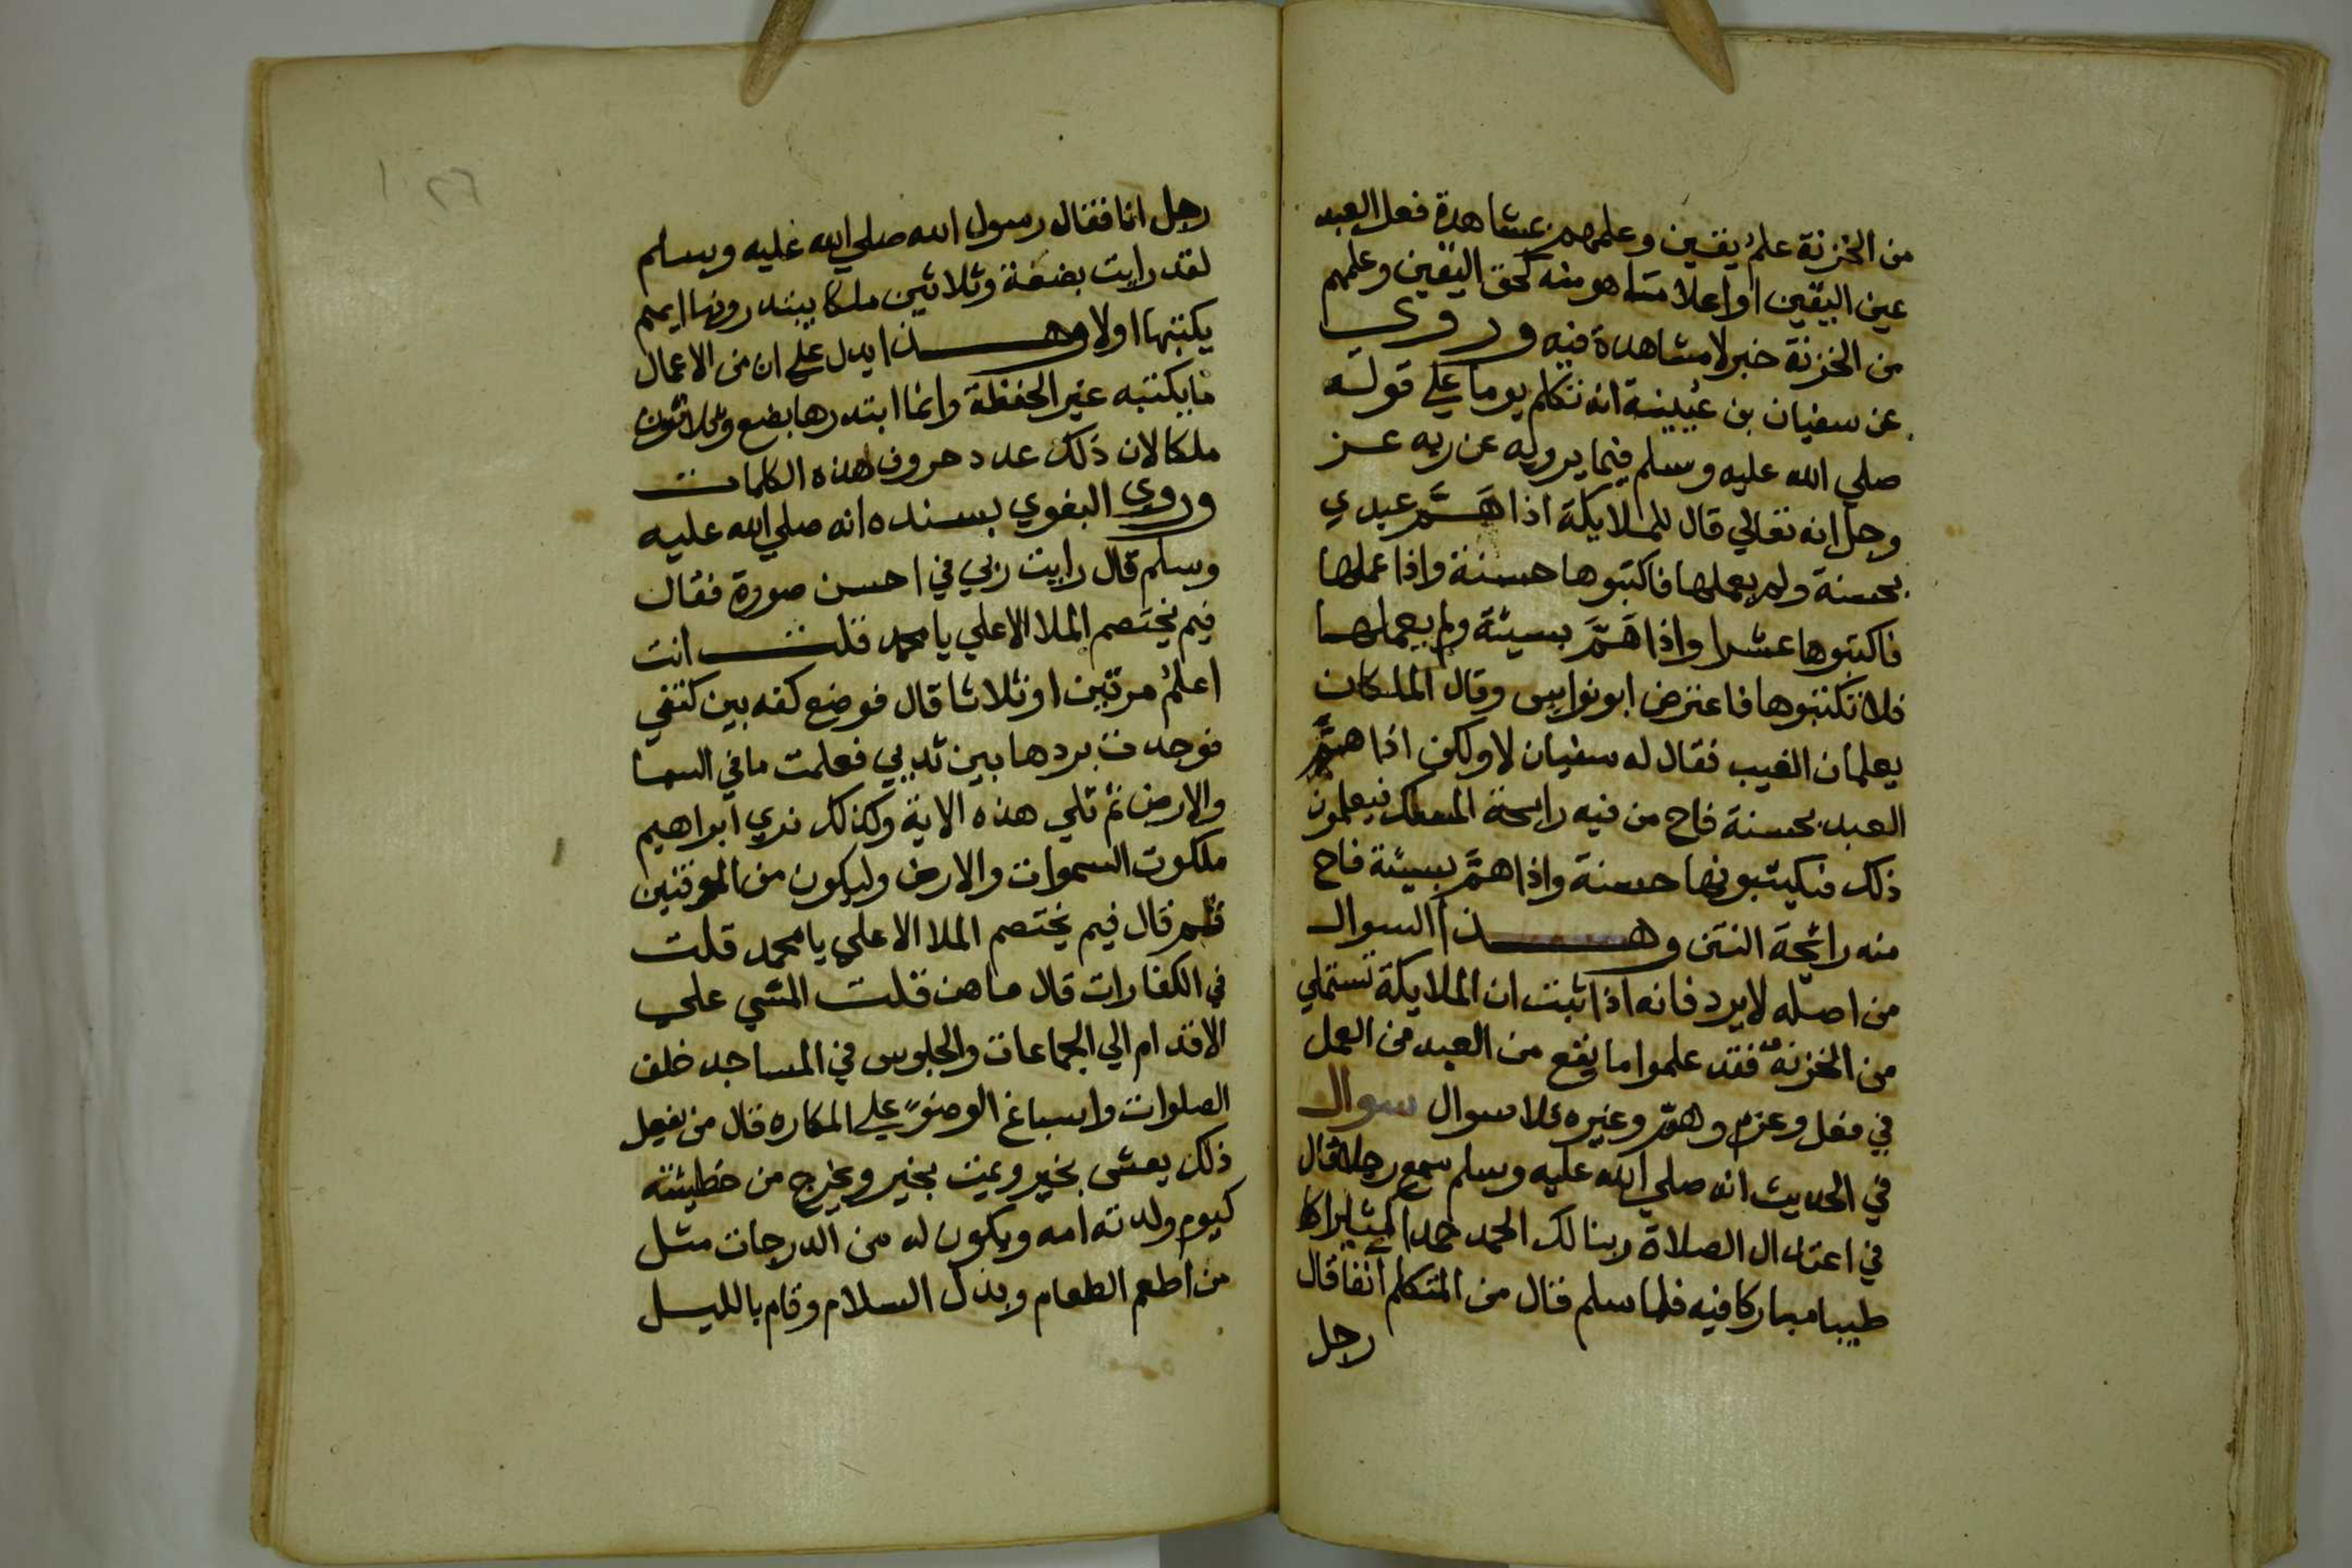 من الخزنة علم يقين وعلمهم بمشاهدة فعل العبد
عين اليقين او اعلا مما هو منه كحق اليقين وعلمهم
من الخزنة خبر لا مشاهدة فيه وروي
عن سفيان بن عيينة انه تكلم يوما علي قوله
صلي الله عليه وسلم فيما يرويه عن ربه عز
وجل انه تعالي قال للملايكة اذا هَمَّ عبدي
بحسنة ولم يعملها فاكتبوها حسنة واذا عملها
فاكتبوها عشرا واذا هَمَّ بسيئة ولم يعملها
فلا تكتبوها فاعترض ابو نواس وقال الملكان
يعلمان الغيب فقال له سفيان لا ولكن اذا همَّ
العبد بحسنة فاح من فيه رايحة المسك فيعلمون
ذلك فيكتبونها حسنة واذا همَّ بسيئة فاح
منه رائحة النتن وهذا السوال
من اصله لا يرد فانه اذا ثبت ان الملايكة تستملي
من الخزنة فقد علموا ما يقع من العبد من العمل
في فعل وعزم وهمّ وغيره فلا سوال سوال
في الحديث انه صلي الله عليه وسلم سمع رجلا قال
في اعتدال الصلاة ربنا لك الحمد حمدا كثيرا
طيبا مباركا فيه فلما سلم قال من المتكلم آنفا قال
رجل
رجل انا فقال رسول الله صلي الله عليه وسلم
لقد رايت بضعة وثلاثين ملكا يبتدرونها ايهم
يكتبها اولا وهذا يدل علي ان من الاعمال
ما يكتبه غير الحفظة وانما ابتدرها بضع وثلاثون
ملكا لان ذلك عدد حروف هذه الكلمات
وروي البغوي بسنده انه صلي الله عليه
وسلم قال رايت ربي في احسن صورة فقال
فيم يختصم الملا الاعلي يا محمد قلت انت
اعلم مرتين او ثلاثا قال فوضع كفه بين كتفي
فوجدت بردها بين ثديي فعلمت ما في السما
والارض ثم تلي هذه الاية وكذلك نري ابراهيم
ملكوت السموات والارض وليكون من الموقنين
ثم قال فيم يختصم الملا الاعلي يا محمد قلت
في الكفارات قال ما هن قلت المشي علي
الاقدام الي الجماعات والجلوس في المساجد خلف
الصلوات واسباغ الوضوء علي المكاره قال من يفعل
ذلك يعش بخير ويمت بخير ويخرج من خطيئته
كيوم ولدته امه ويكون له من الدرجات مثل
من اطعم الطعام وبذل السلام وقام بالليل